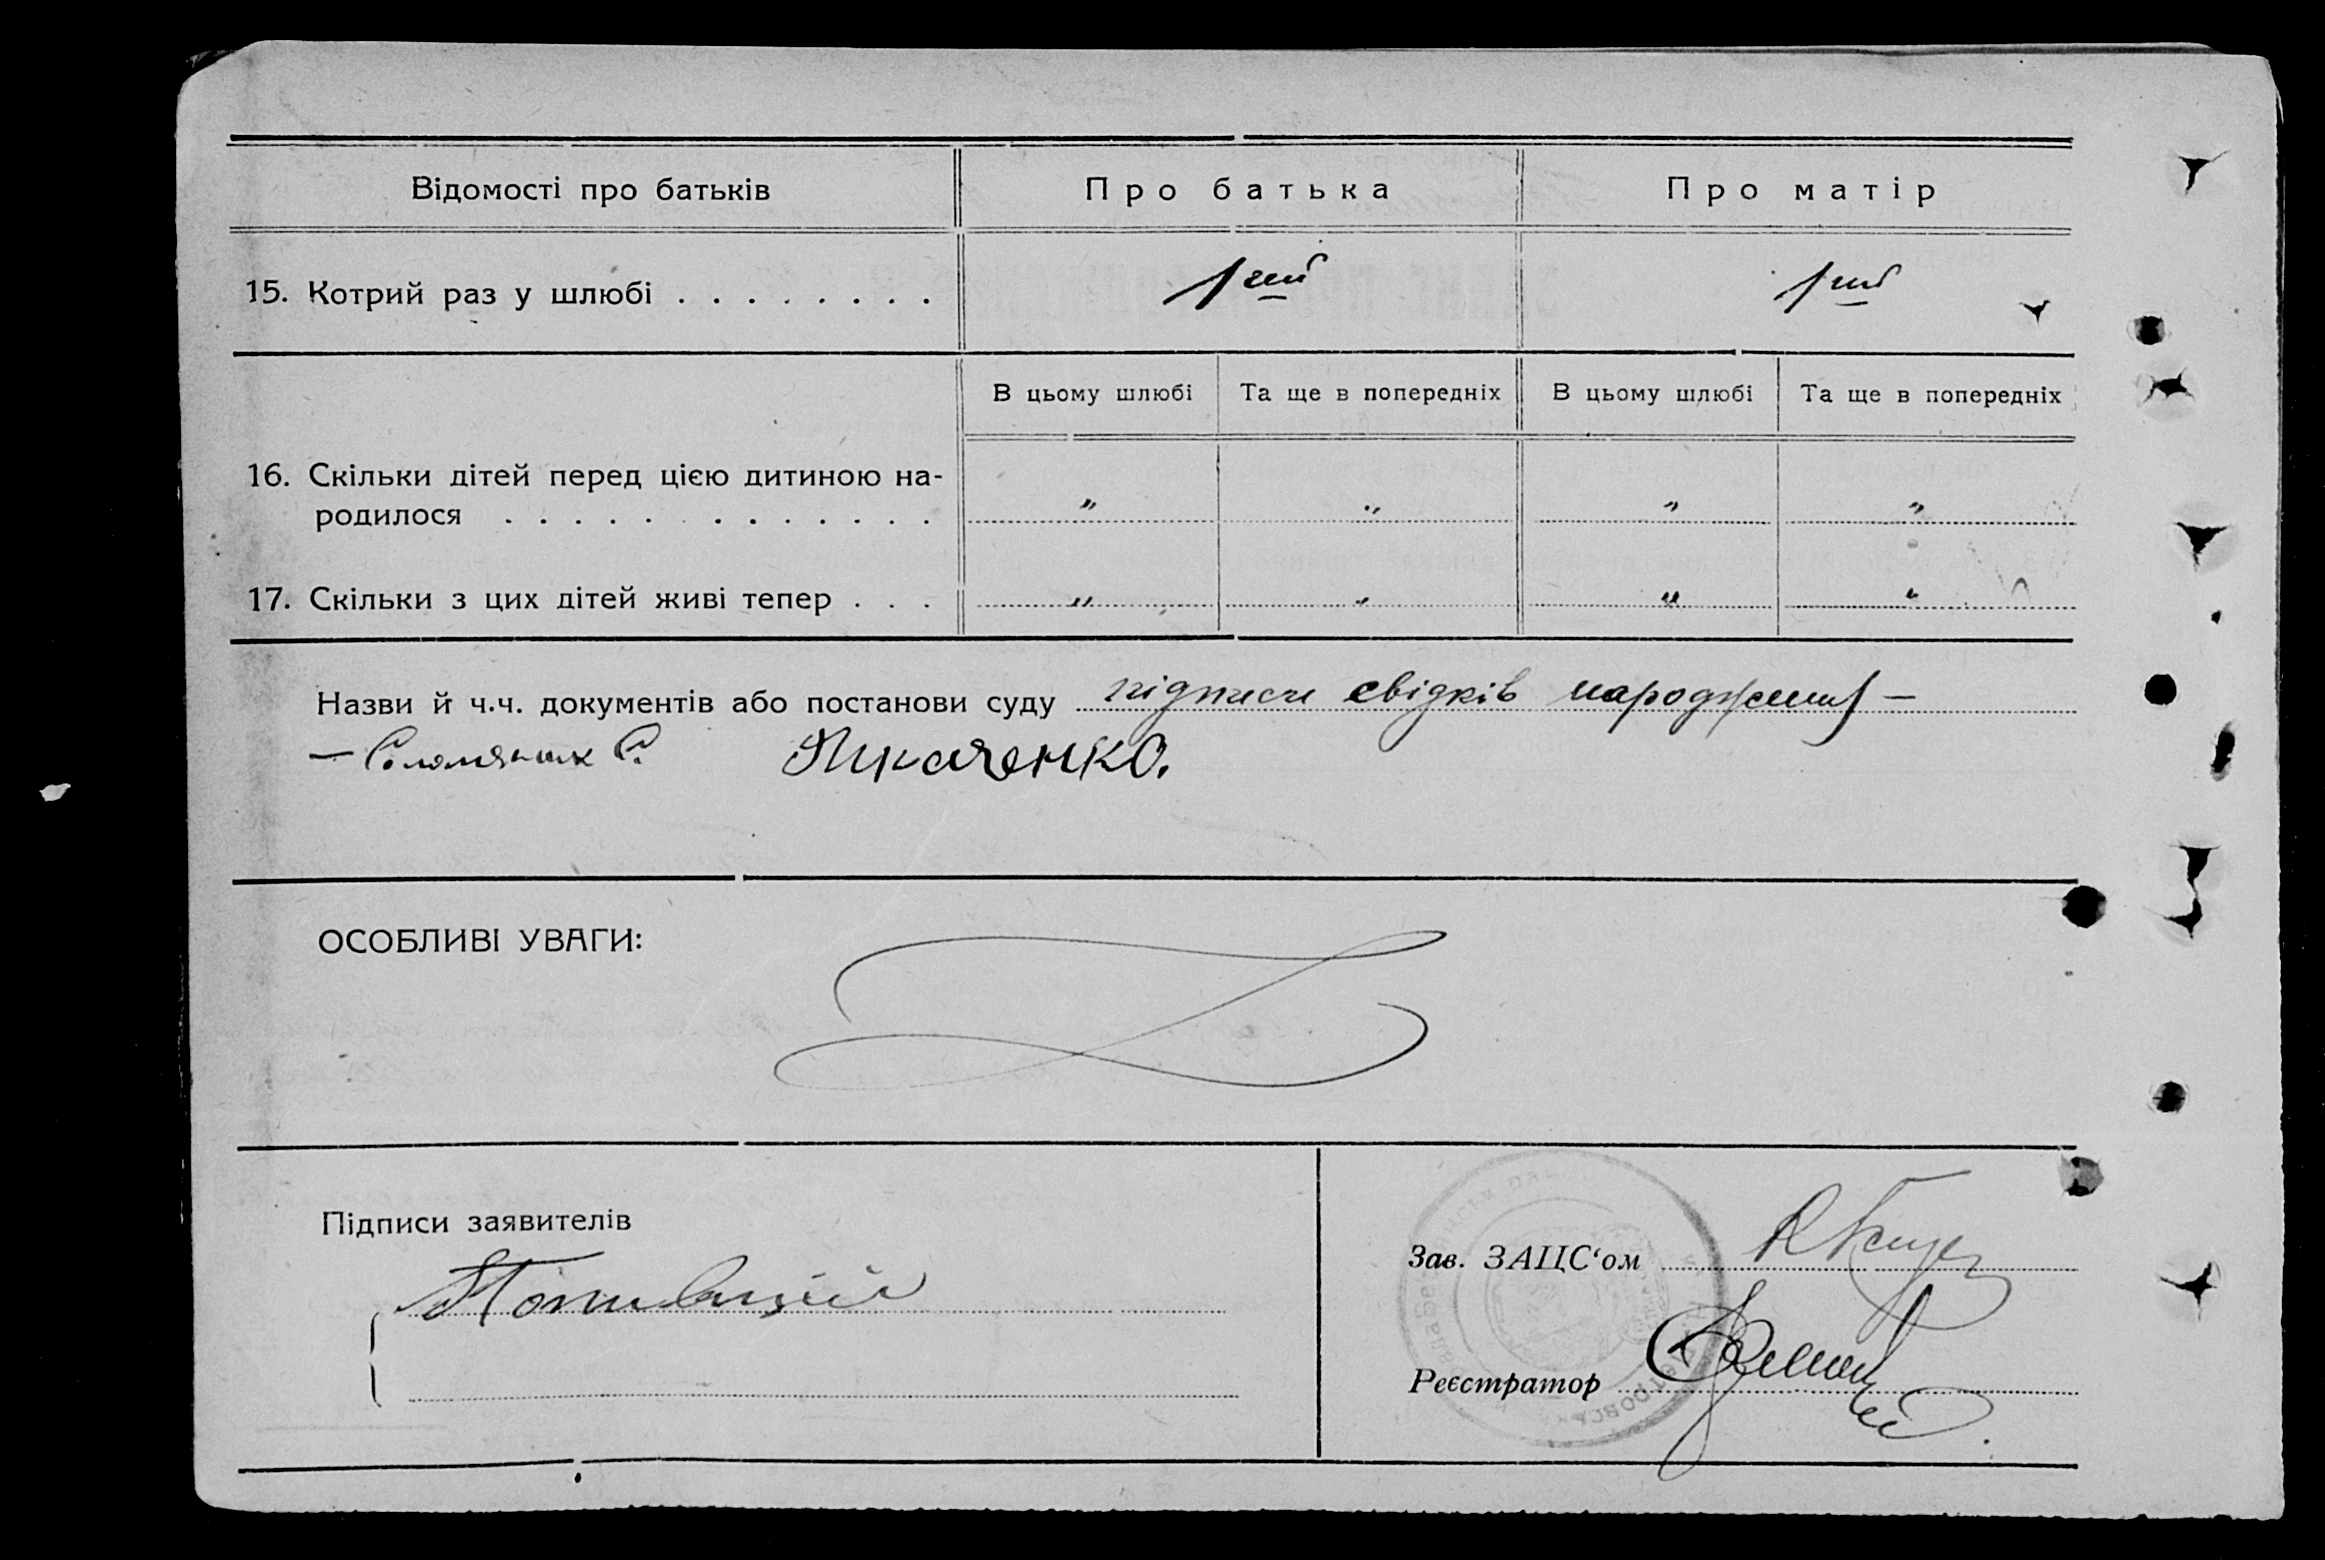 Відомості про батьків Про батька Про матір
15. Котрий раз у шлюбі . . . . . . . . 1ший 1ший
В цьому шлюбі Та ще в попередніх В цьому шлюбі Та ще в попередніх
16. Скільки дітей перед цією дитиною на-
родилося . . . . . . . . . . . . . „ „ „ „
17. Скільки з цих дітей живі тепер . . . „ „ „ „
Назви й ч.ч. документів або постанови суду підписи свідків народження —
— С. Ткаченко.
ОСОБЛИВІ УВАГИ:
Підписи заявителів
Зав. ЗАЦС‘ом
Реєстратор